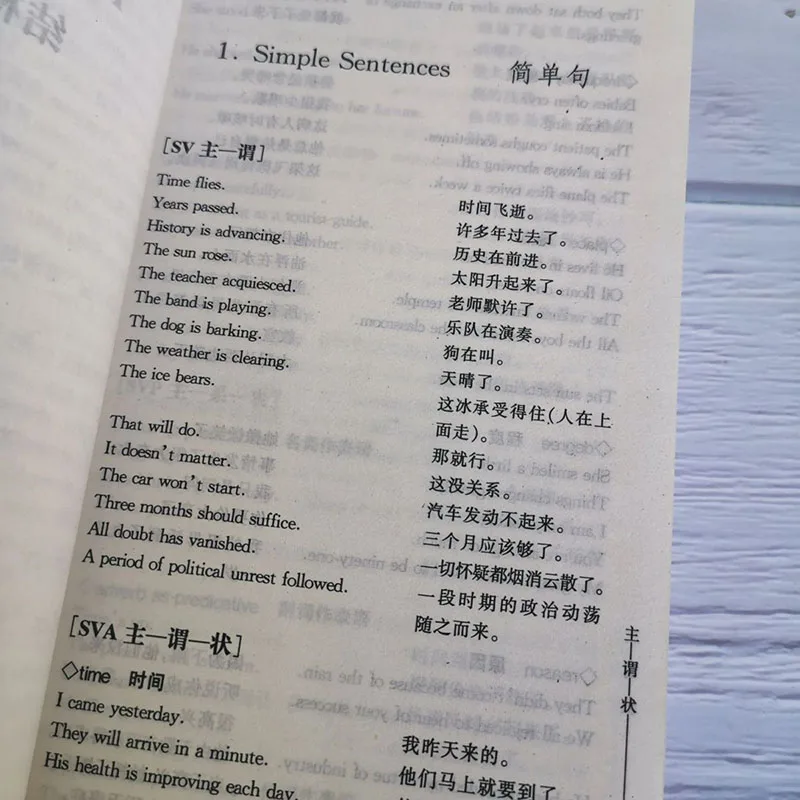 1. Simple Sentences 简单句
[SV 主—谓]
Time flies. 时间飞逝。
Years passed. 许多年过去了。
History is advancing. 历史在前进。
The sun rose. 太阳升起来了。
The teacher acquiesced. 老师默许了。
The band is playing. 乐队在演奏。
The dog is barking. 狗在叫。
The weather is clearing. 天晴了。
The ice bears. 这冰承受得住(人在上
面走)。
That will do. 那就行。
It doesn't matter. 这没关系。
The car won't start. 汽车发动不起来。
Three months should suffice. 三个月应该够了。
All doubt has vanished. 一切怀疑都烟消云散了。
A period of political unrest followed. 一段时期的政治动荡
随之而来。
[SVA 主—谓—状]
◇time 时间
I came yesterday. 我昨天来的。
They will arrive in a minute. 他们马上就要到了
His health is improving each day.
主—谓—状
结